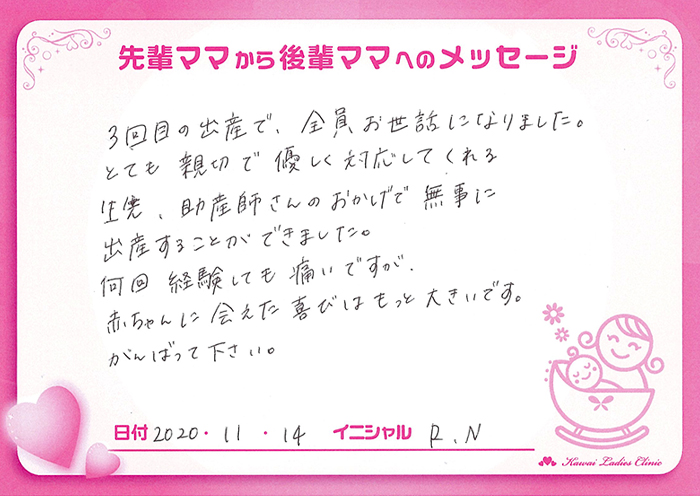 先輩ママから後輩ママへのメッセージ
3回目の出産で、全員お世話になりました。
とても 親切で 優しく対応してくれる
先生、助産師さんのおかげで 無事に
出産することができました。
何回 経験しても 痛いですが、
赤ちゃんに 会えた 喜びは もっと 大きいです。
がんばって下さい。
日付 2020・11・14 イニシャル R.N
Kawai Ladies Clinic